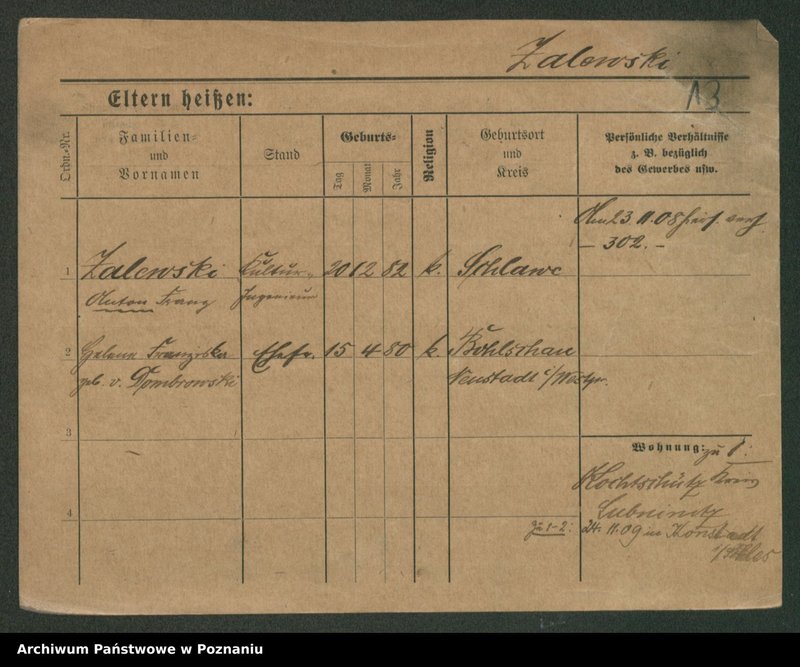 Zalewski
13
Eltern heißen:
Ordn.-Nr.
Familien-
und
Vornamen
Stand
Geburts-
Tag
Monat
Jahr
Religion
Geburtsort
und
Kreis
Persönliche Verhältnisse
z. B. bezüglich
des Gewerbes usw.
Am 23. 11. 08 hies. verh.
- 302. -
1 Zalewski Kultur- 20 12 82 k. Schlawe
Anton Franz Ingenieur
2 Helene Franziska Ehefr. 15 4 80 k. Bohlschau
geb. v. Dombrowski Neustadt i/Westpr.
3
Wohnung: zu 1:
Kochtschütz Kreis
Lubinitz
4
zu 1-2: 24. 11. 09 in Konstadt
Archiwum Państwowe w Poznaniu